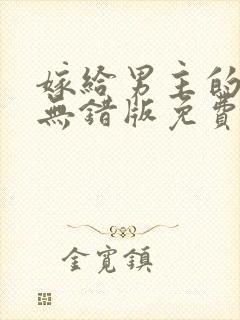 嫁給男主的
無錯版免費
金寬鎮